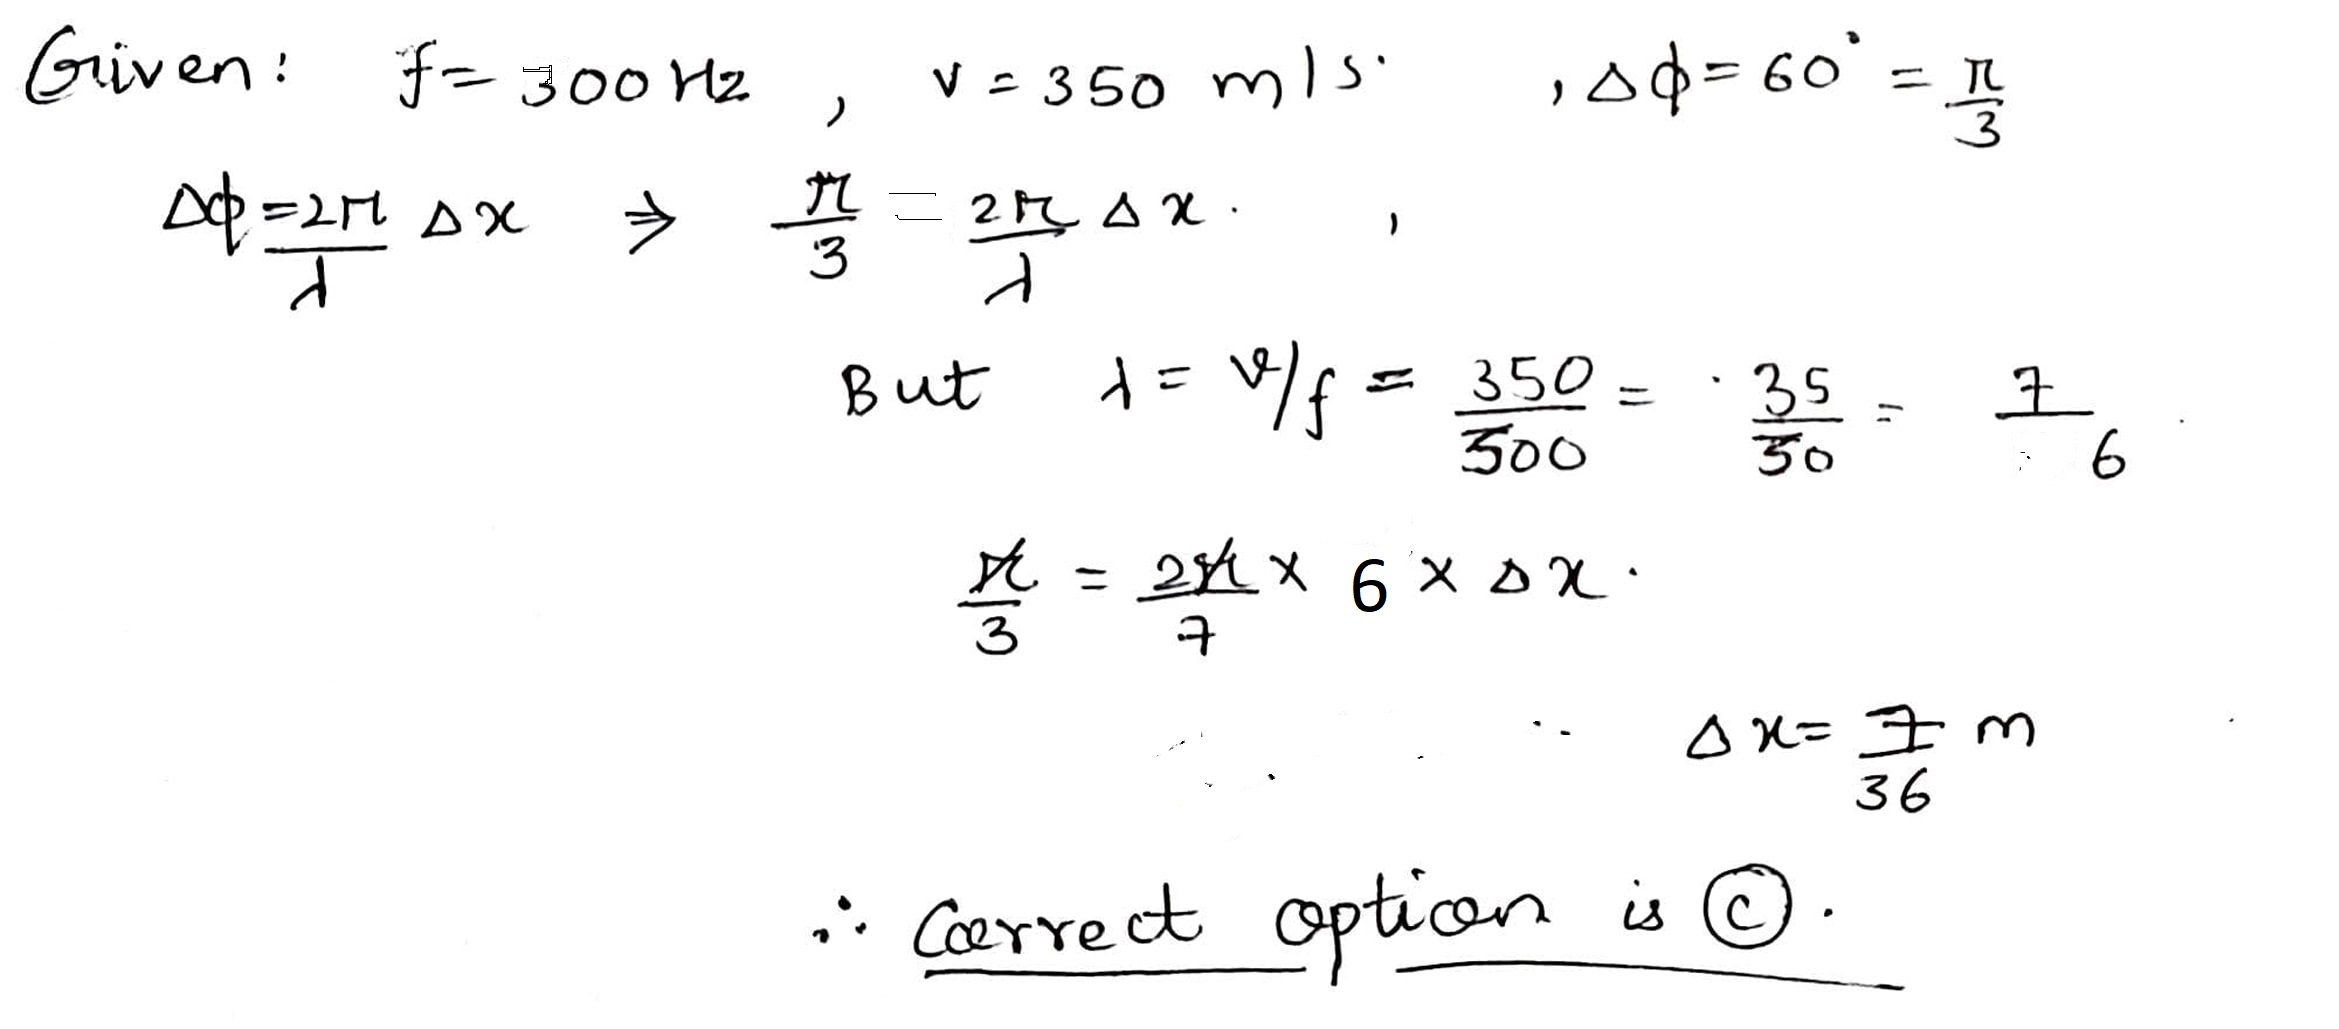 Given: f = 300 Hz , v = 350 m/s. , Δϕ = 60° = π/3
Δϕ = 2π/λ Δx ⇒ π/3 = 2π/λ Δx. ,
But λ = v/f = 350/300 = 35/30 = 7/6
π/3 = 2π/7 × 6 × Δx.
Δx = 7/36 m
∴ Correct option is (c).